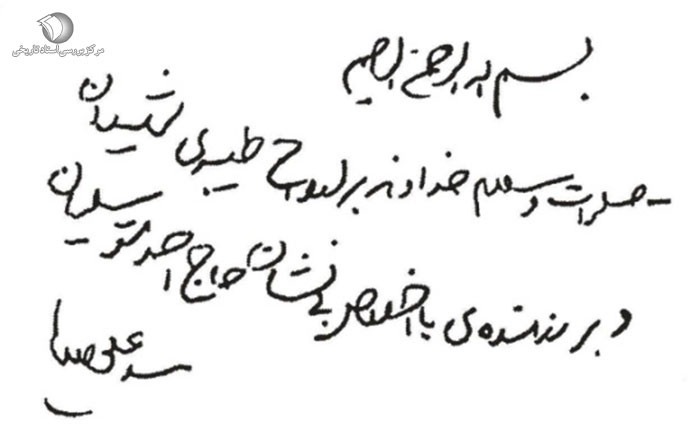 مرکز بررسی اسناد تاریخی
بسم الله الرحمن الرحیم
صلوات و سلام خداوند بر ارواح طیبه‌ی شهیدان
و بر رزمنده‌ی با اخلاص بی نشان حاج احمد متوسلیان
سید علی